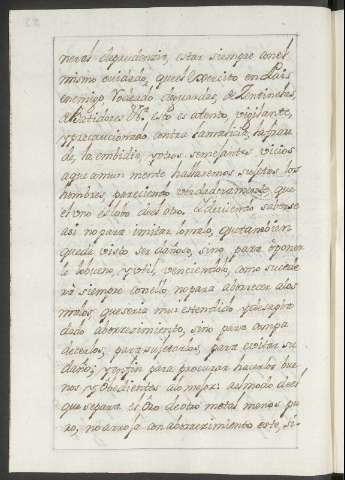 neral de prudencia, estar siempre con el
mismo cuidado, que el Exercito en Pais
enemigo rodeado de guardas, de Zentinelas,
Batidores &ª esto es atento, vigilante,
y precaucionado contra la malicia, la frau
de, la embidia, y otros semejantes vicios
a que comun mente hallaremos sujetos los
hombres, pareciendo verdaderamente que
el uno es lobo del otro. deviendo saberse
asi no para imitar lo malo, que tambien
queda visto ser dañoso, sino para oponer
lo bueno, y util, venciendolo, como sucede
rá siempre con ello. no para aborrecer a los
malos, que seria mui estendido y desagra
dado aborrecimiento, sino para compa
decerlos, para sujetarlos, para evitar su
daño; y en fin para procurar hacerlos bue
nos y obedientes a lo mejor: al modo de el
que separa el Oro de otro metal menos pu
ro, no arroja con aborrecimiento este, si-